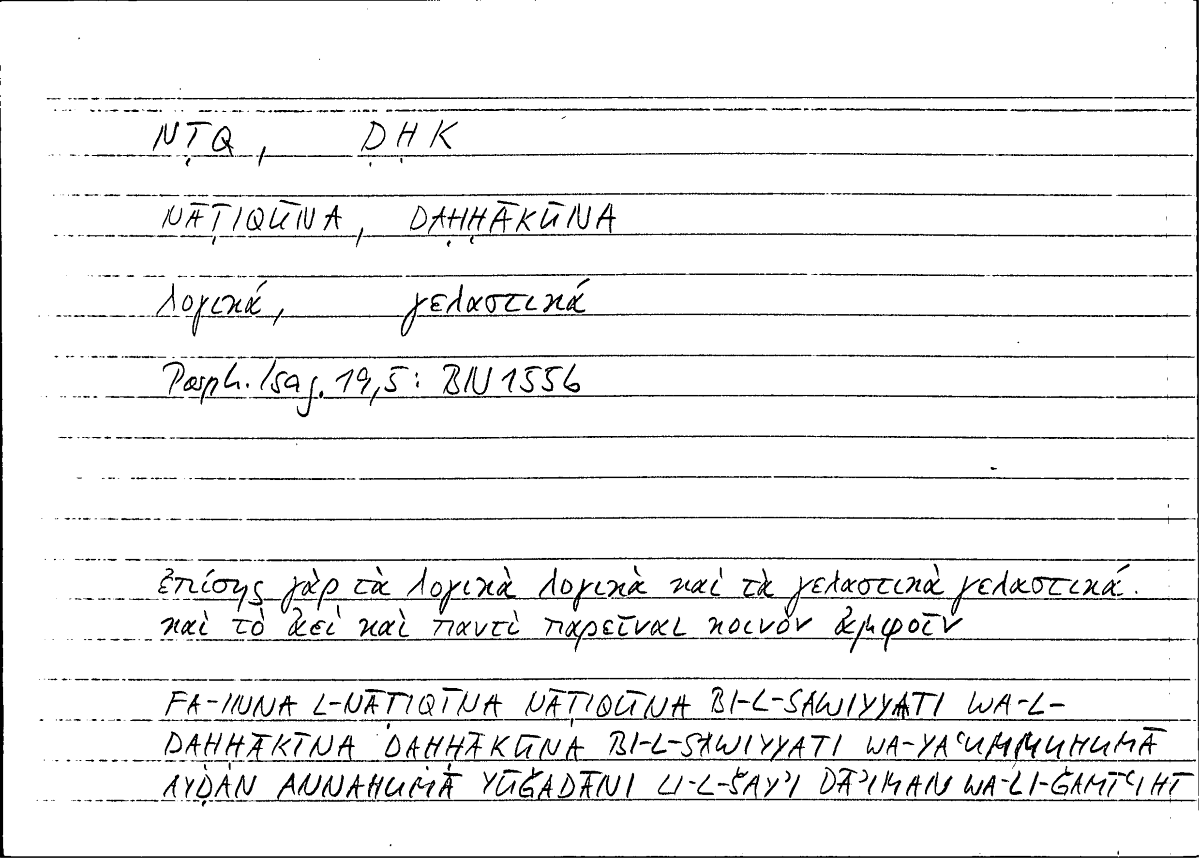 NṬQ, ḌḤK
NĀṬIQŪNA, ḌAḤḤĀKŪNA
λογικά, γελαστικά
Porph. Isag. 19,5: BN 155b
ἐπίσης γὰρ τὰ λογικὰ λογικὰ καὶ τὰ γελαστικὰ γελαστικά.
καὶ τὸ ἀεὶ καὶ παντὶ παρεῖναι κοινὸν ἀμφοῖν
FA-INNA L-NĀṬIQĪNA NĀṬIQŪNA BI-L-SAWIYYATI WA-L-
ḌAḤḤĀKĪNA ḌAḤḤĀKŪNA BI-L-SAWIYYATI WA-YAʿUMMUHUMĀ
AYḌAN ANNAHUMĀ YŪǦADĀNI LI-L-ŠAYʾI DĀʾIMAN WA-LI-ǦAMĪʿIHĪ